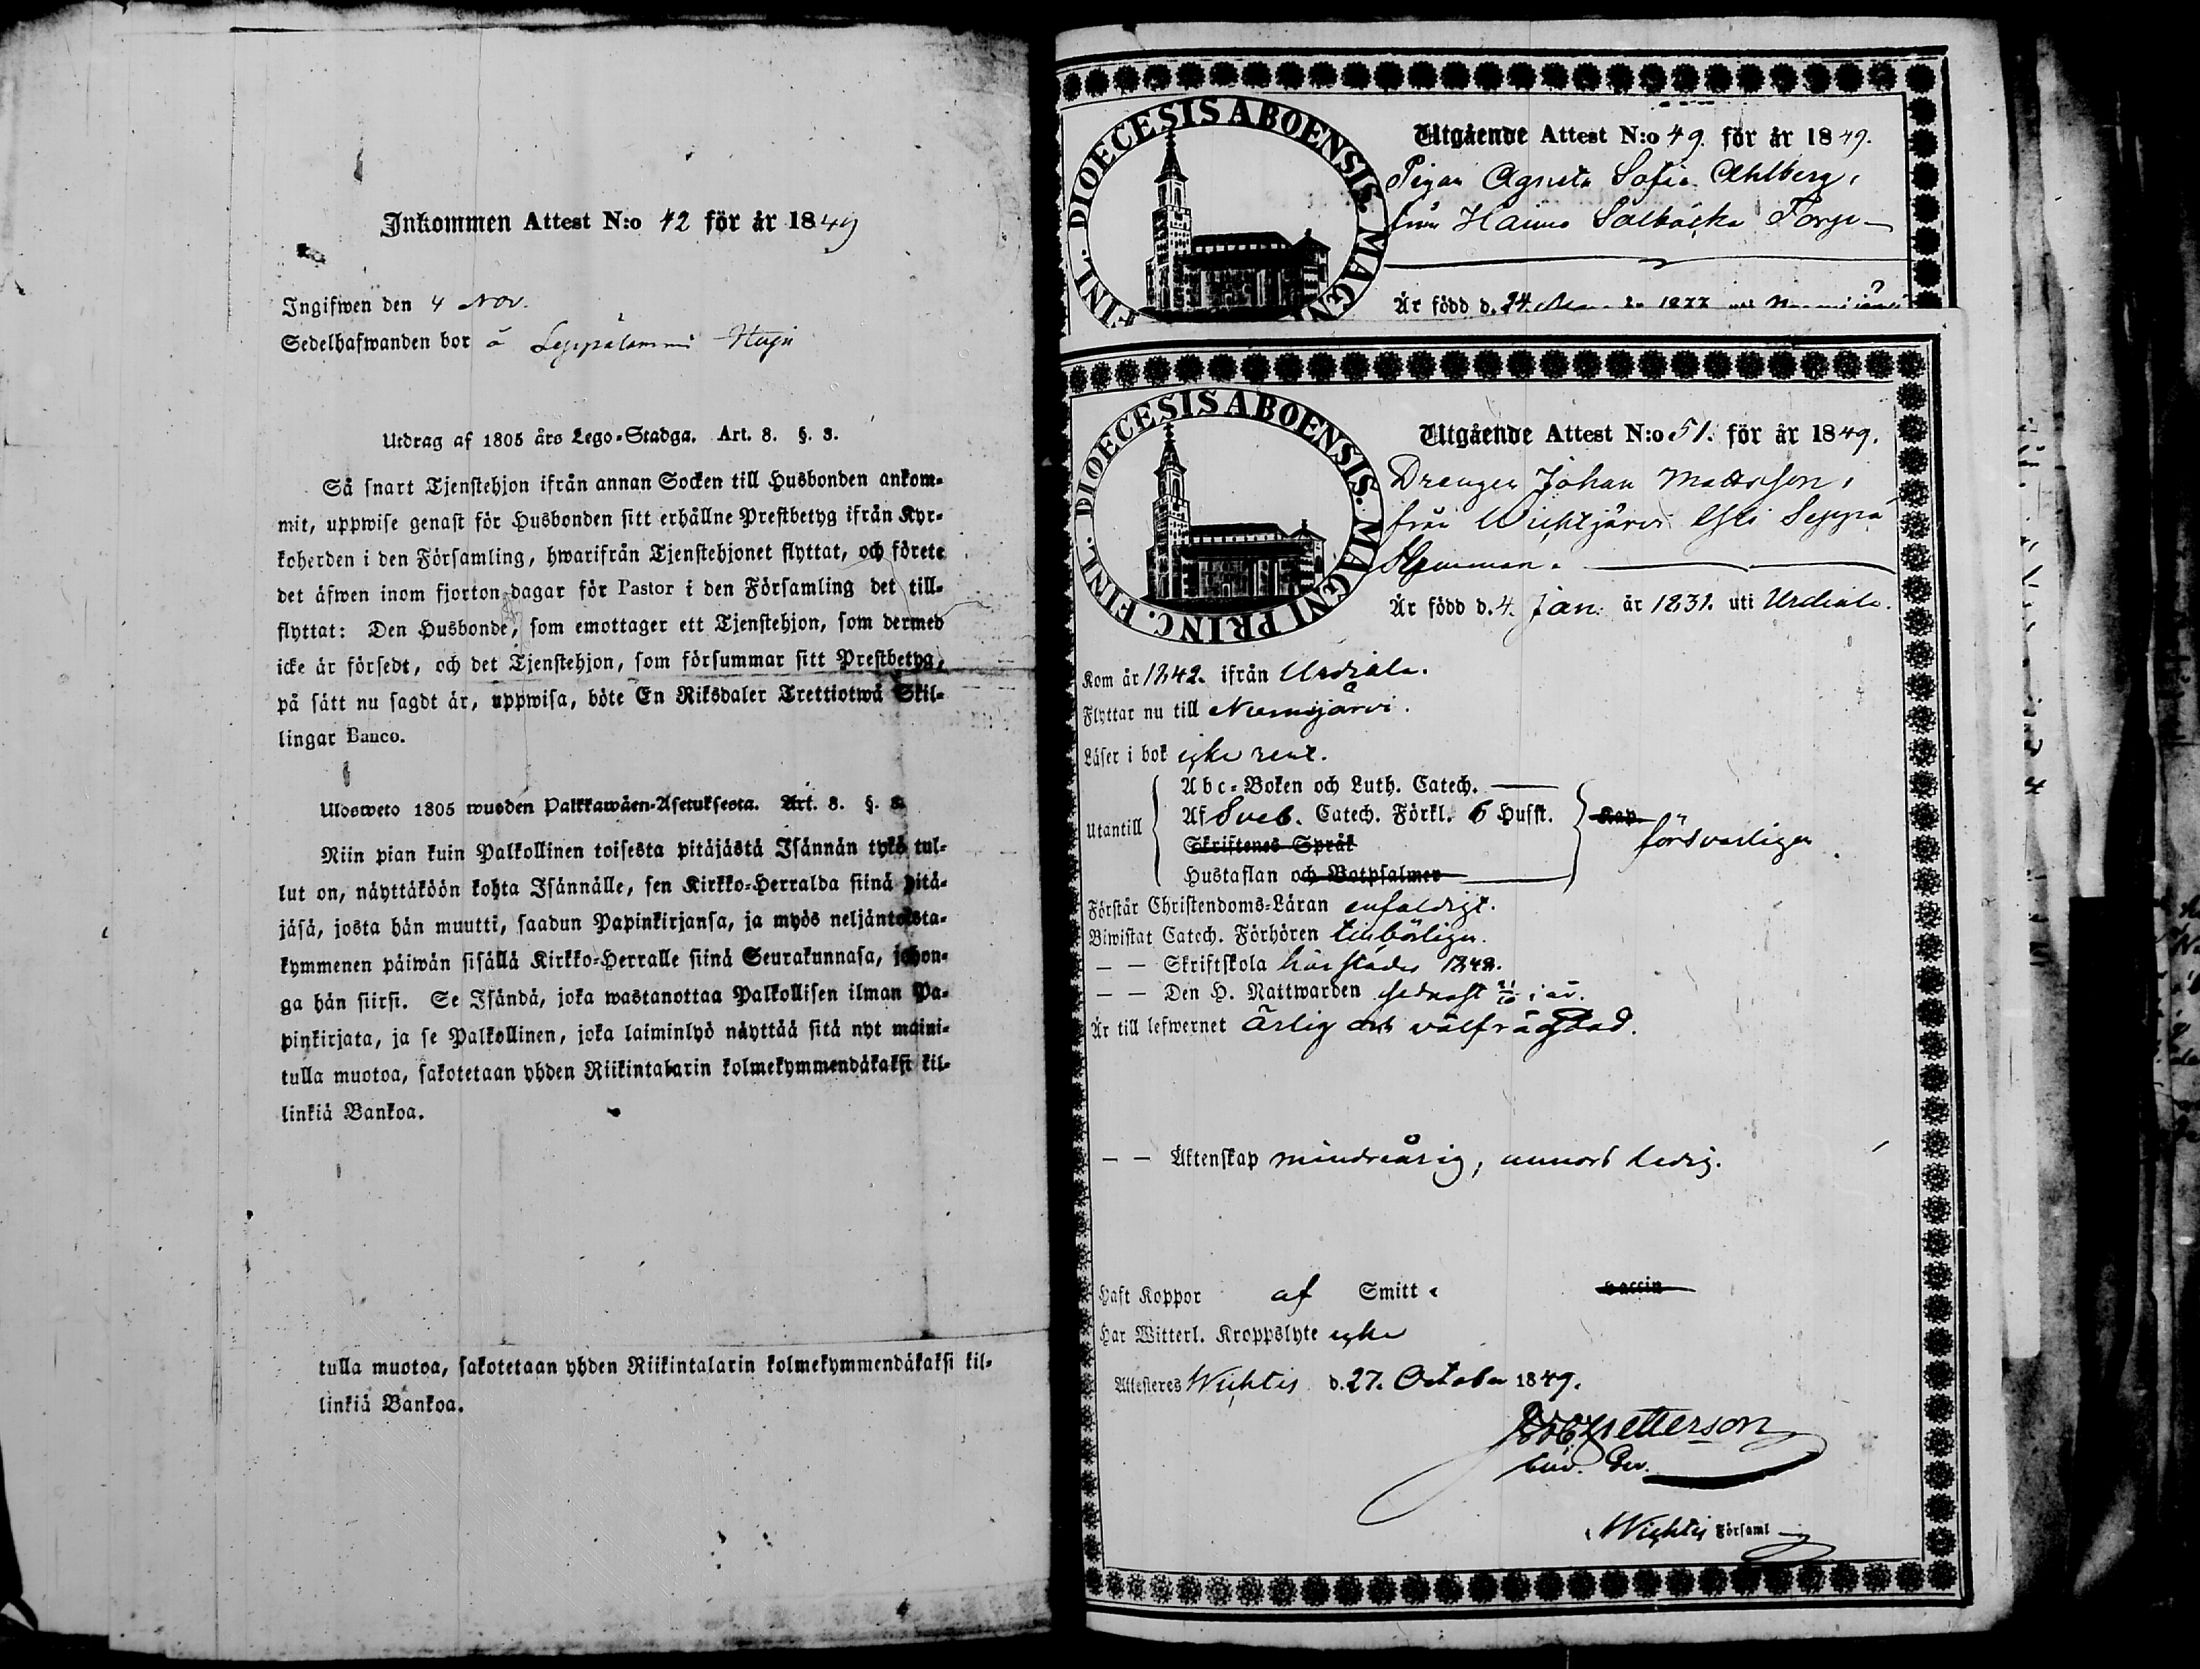 Inkommen Attest N:o 42 för år 1849
Ingifwen den 4 Nov.
Sedelhafwanden bor å Leppälammi
Utdrag af 1805 års Lego-Stadga. Art. 8. §. 8.
Så snart Tjenstehjon ifrån annan Socken till Husbonden ankom-
mit, uppwise genast för Husbonden sitt erhållne Prestbetyg ifrån Kyr-
koherden i den Församling, hwarifrån Tjenstehjonet flyttat, och förete
det äfwen inom fjorton dagar för Pastor i den Församling det till-
flyttat: Den Husbonde, som emottager ett Tjenstehjon, som dermed
icke är försedt, och det Tjenstehjon, som försummar sitt Prestbetyg,
på sätt nu sagdt är, uppwisa, böte En Riksdaler Trettiotwå Skil-
lingar Banco.
Ulosweto 1805 wuoden Palkkawäen-Asetuksesta. Art. 8. §. 8.
Niin pian kuin Palkollinen toisesta pitäjästä Isännän tykö tul-
lut on, näyttäköön kohta Isännälle, sen Kirkko-Herralda siinä pitä-
jäsä, josta hän muutti, saadun Papinkirjansa, ja myös neljäntoista-
kymmenen päiwän sisällä Kirkko-Herralle siinä Seurakunnasa, johon-
ga hän siirsi. Se Isändä, joka wastanottaa Palkollisen ilman Pa-
pinkirjata, ja se Palkollinen, joka laiminlyö näyttää sitä nyt maini-
tulla muotoa, sakotetaan yhden Riikintalarin kolmekymmendäkaksi kil-
linkiä Bankoa.
tulla muotoa, sakotetaan yhden Riikintalarin kolmekymmendäkaksi kil-
linkiä Bankoa.
DIOECESIS ABOENSIS. MAGNI FINL.
Utgående Attest N:o 49. för år 1849.
Pigan Agneta Sofia Ahlberg,
från Haimo Salbacka Torp
Är född d. 24.
DIOECESIS ABOENSIS. MAGNI PRINC. FINL.
Utgående Attest N:o 51. för år 1849.
Drengen Johan Mattsson,
från Wichtjärvi Seppä
Hemman.
Är född d. 4. Jan. år 1831. uti Urdiala.
Kom år 1842. ifrån Urdiala.
Flyttar nu till Nurmijärvi.
Läser i bok icke rent.
Utantill
Abc-Boken och Luth. Catech.
Af Sveb. Catech. Förkl. 6 Hufst.
Skriftenes Språk
Hustaflan och Botpsalmer
Kap.
försvarligen
Förstår Christendoms-Läran enfaldigt.
Biwistat Catech. Förhören tillbörligen.
— — Skriftskola härstädes 1848.
— — Den H. Nattwarden sednast 21/10 i år.
Är till lefwernet ärlig och välfrägdad.
— — Äktenskap mindreårig, annars ledig.
Haft Koppor af Smitt. vaccin
Har Witterl. Kroppslyte icke
Attesteres Wichtis d. 27. October 1849.
petterson
i Wichtis Församl